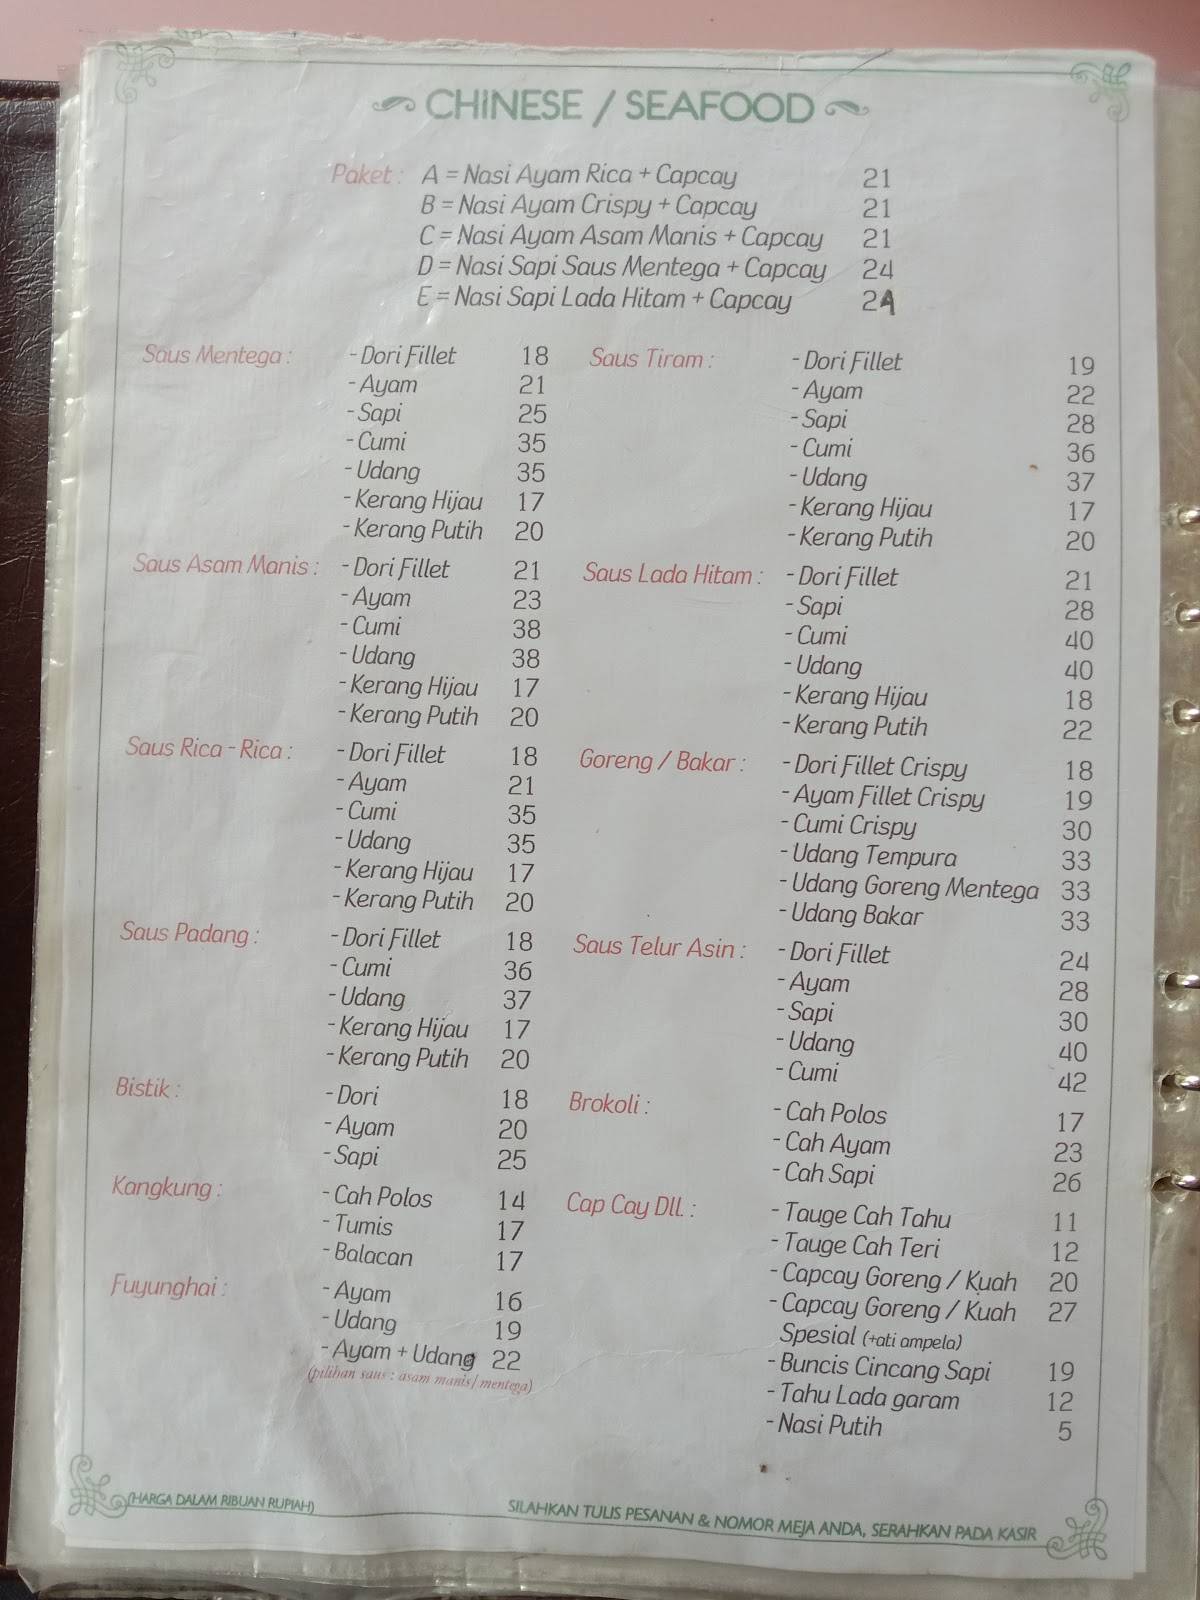 CHINESE / SEAFOOD
Paket : A = Nasi Ayam Rica + Capcay 21
B = Nasi Ayam Crispy + Capcay 21
C = Nasi Ayam Asam Manis + Capcay 21
D = Nasi Sapi Saus Mentega + Capcay 24
E = Nasi Sapi Lada Hitam + Capcay 24
Saus Mentega : - Dori Fillet 18
- Ayam 21
- Sapi 25
- Cumi 35
- Udang 35
- Kerang Hijau 17
- Kerang Putih 20
Saus Asam Manis : - Dori Fillet 21
- Ayam 23
- Cumi 38
- Udang 38
- Kerang Hijau 17
- Kerang Putih 20
Saus Rica - Rica : - Dori Fillet 18
- Ayam 21
- Cumi 35
- Udang 35
- Kerang Hijau 17
- Kerang Putih 20
Saus Padang : - Dori Fillet 18
- Cumi 36
- Udang 37
- Kerang Hijau 17
- Kerang Putih 20
Bistik : - Dori 18
- Ayam 20
- Sapi 25
Kangkung : - Cah Polos 14
- Tumis 17
- Balacan 17
Fuyunghai : - Ayam 16
- Udang 19
- Ayam + Udang 22
(pilihan saus : asam manis/ mentega)
Saus Tiram : - Dori Fillet 19
- Ayam 22
- Sapi 28
- Cumi 36
- Udang 37
- Kerang Hijau 17
- Kerang Putih 20
Saus Lada Hitam : - Dori Fillet 21
- Sapi 28
- Cumi 40
- Udang 40
- Kerang Hijau 18
- Kerang Putih 22
Goreng / Bakar : - Dori Fillet Crispy 18
- Ayam Fillet Crispy 19
- Cumi Crispy 30
- Udang Tempura 33
- Udang Goreng Mentega 33
- Udang Bakar 33
Saus Telur Asin : - Dori Fillet 24
- Ayam 28
- Sapi 30
- Udang 40
- Cumi 42
Brokoli : - Cah Polos 17
- Cah Ayam 23
- Cah Sapi 26
Cap Cay Dll. : - Tauge Cah Tahu 11
- Tauge Cah Teri 12
- Capcay Goreng / Kuah 20
- Capcay Goreng / Kuah 27
Spesial (+ati ampela)
- Buncis Cincang Sapi 19
- Tahu Lada garam 12
- Nasi Putih 5
(HARGA DALAM RIBUAN RUPIAH)
SILAHKAN TULIS PESANAN & NOMOR MEJA ANDA, SERAHKAN PADA KASIR